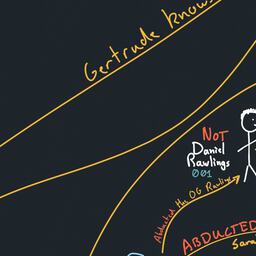 Gertrude knows
NOT
Daniel
Rawlings
001
Abducted the OG Rawlings
ABDUCTED
Sara